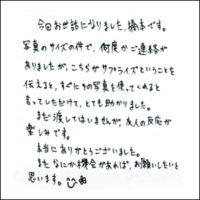 今回お世話になりました、橋本です。
写真のサイズの件で、何度かご連絡が
ありましたが、こちらがサプライズということを
伝えると、すぐにその写真を使ってくれると
言っていただけて、とても助かりました。
まだ渡してはいませんが、友人の反応が
楽しみです。
本当にありがとうございました。
またなにか機会があれば、お願いしたいと
思います。